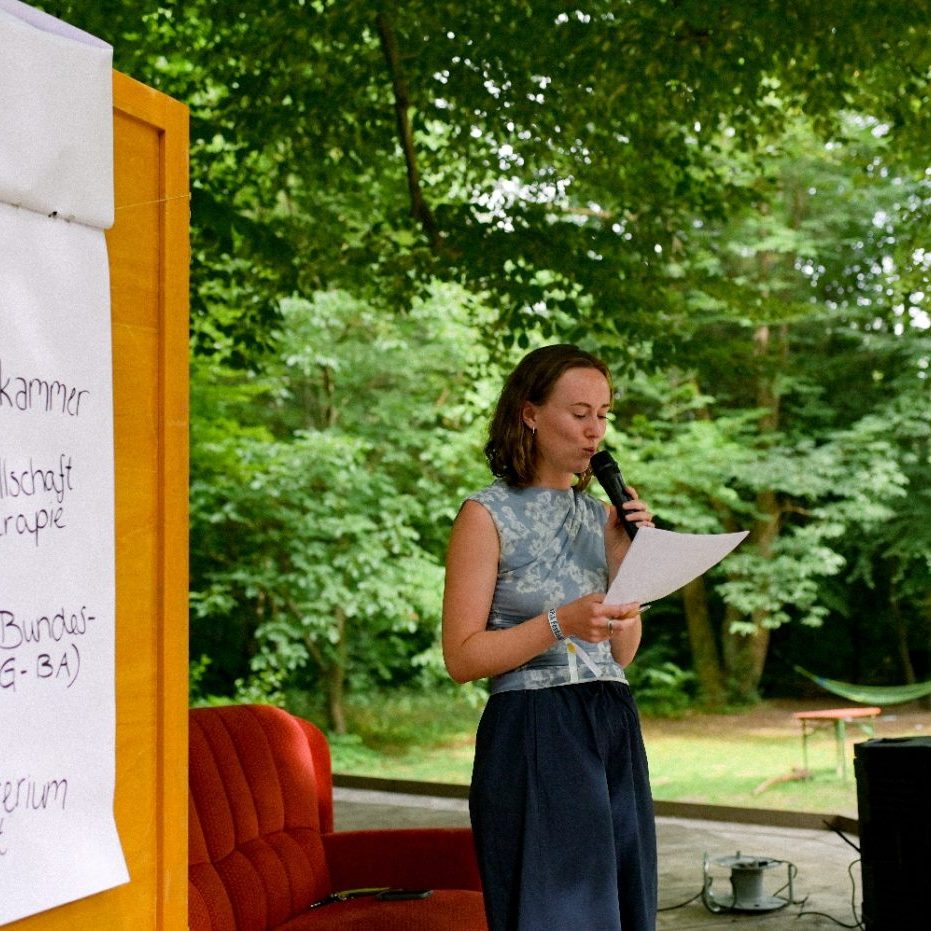 kammer
llschaft
rapie
Bundes-
G-BA)
erium